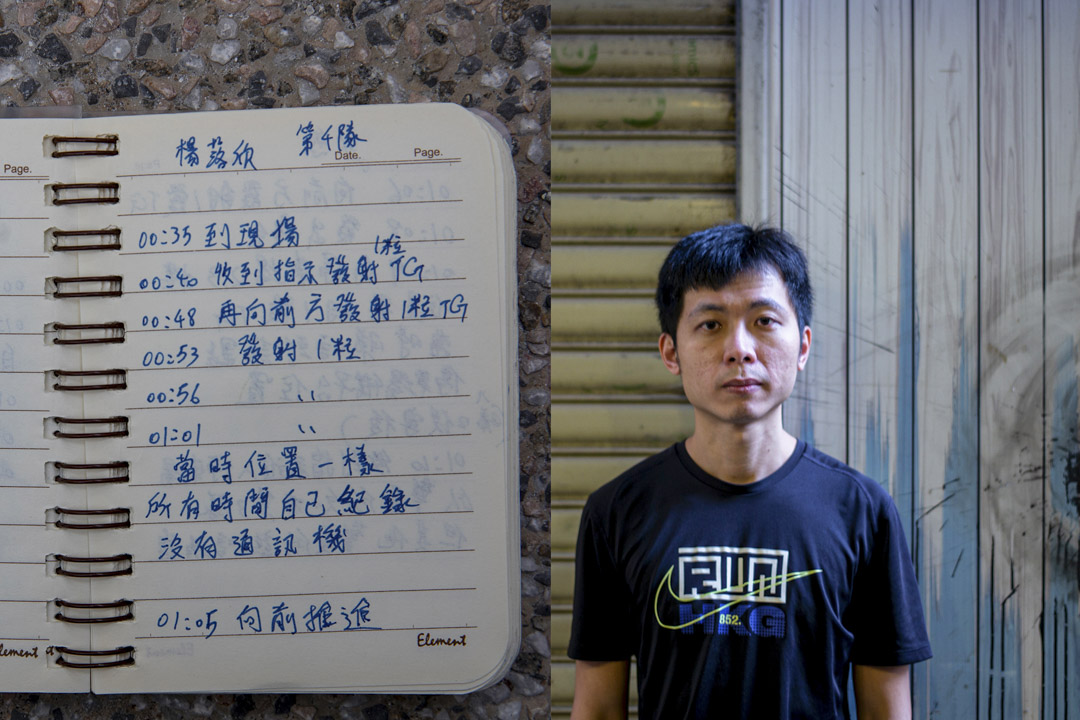 Page.
楊落欣 第4隊
Date.
Page.
00:35 到現場
00:40 收到指示發射1粒TG
00:48 再向前方發射1粒TG
00:53 發射1粒
00:56 〃
01:01 〃
當時位置一樣
所有時間自己紀錄
沒有通訊機
01:05 向前推進
Element
RUN
HKG
852.